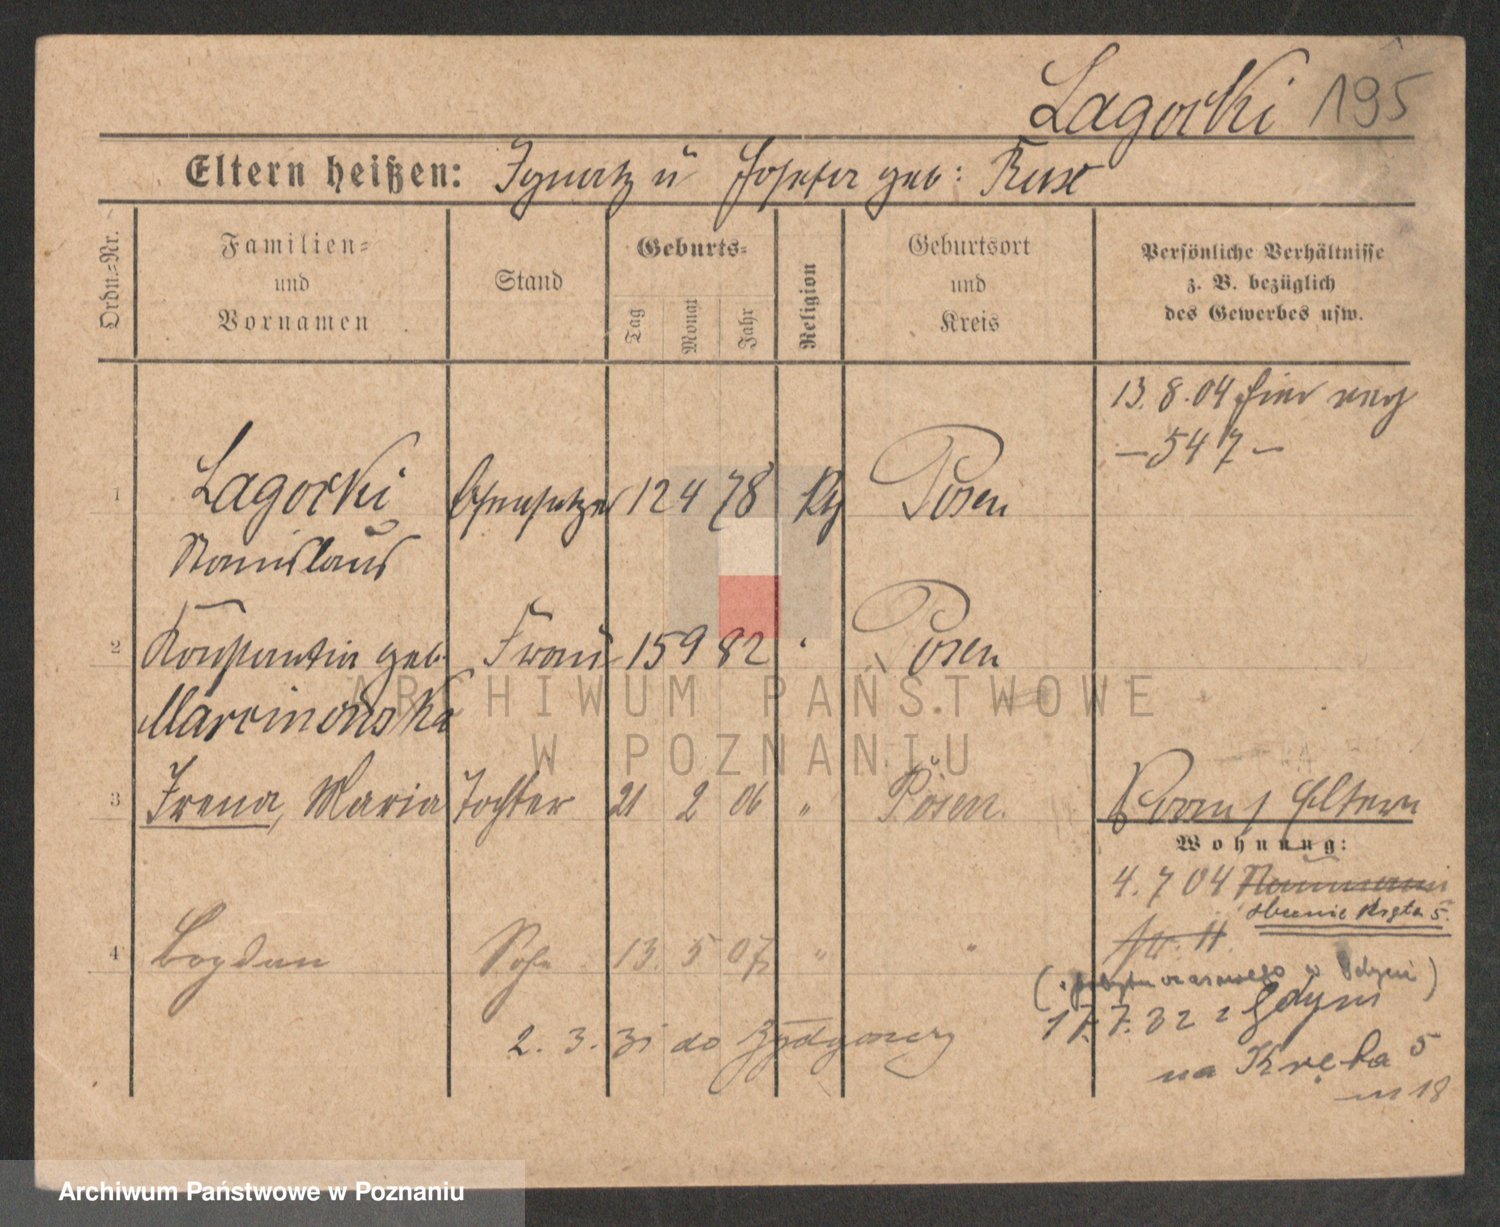 Lagocki 195
Eltern heißen: Ignatz u Josefa geb:
Ordn.-Nr.
Familien-
und
Vornamen
Stand
Geburts-
Tag
Monat
Jahr
Religion
Geburtsort
und
Kreis
Persönliche Verhältnisse
z. B. bezüglich
des Gewerbes usw.
13. 8. 04 hier
— 547 —
1 Lagocki Ofensetzer 12 4 78 Posen
Stanislaus
2 Konstantia geb. Frau 15 9 82 Posen
3 Irena, Maria Tochter 21 2 06 " Posen. Eltern
Wohnung:
4. 7 04
obecnie 5.
4 Bogdan Sohn 13. 5 07 " "
w Gdyni )
17. 7. 32 z Gdyni
2. 3. 31 do Bydgoszczy
na 5
m 18
ARCHIWUM PAŃSTWOWE
W POZNANIU
Archiwum Państwowe w Poznaniu